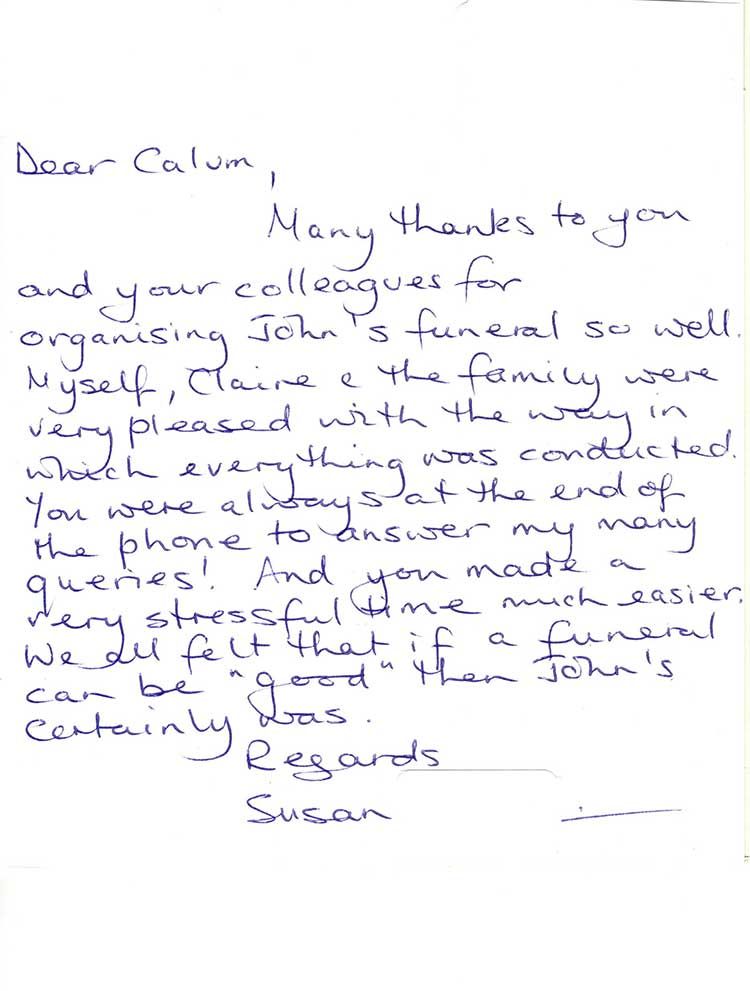 Dear Calum,
Many thanks to you
and your colleagues for
organising John's funeral so well.
Myself, Claire & the family were
very pleased with the way in
which everything was conducted.
You were always at the end of
the phone to answer my many
queries! And you made a
very stressful time much easier.
We all felt that if a funeral
can be "good" then John's
certainly was.
Regards
Susan